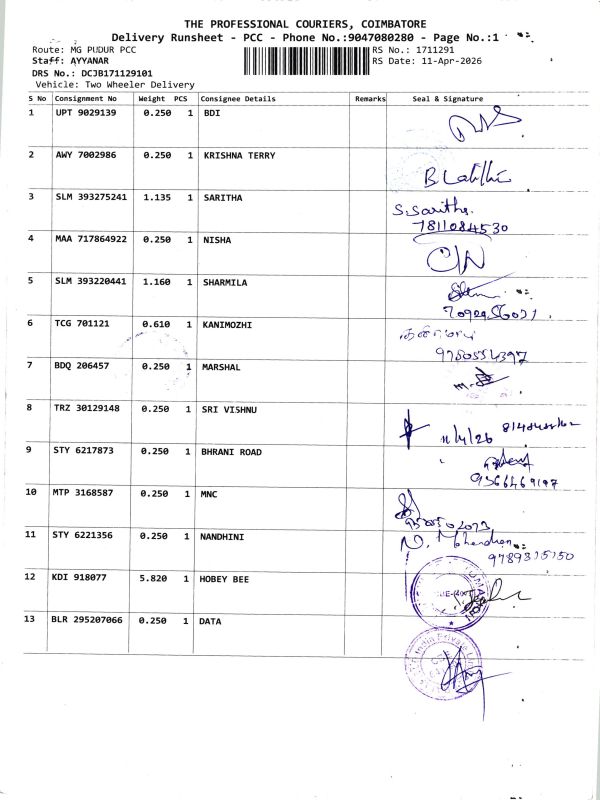 THE PROFESSIONAL COURIERS, COIMBATORE
Delivery Runsheet - PCC - Phone No.:9047080280 - Page No.:1
Route: MG PUDUR PCC
RS No.: 1711291
Staff: AYYANAR
RS Date: 11-Apr-2026
DRS No.: DCJB171129101
Vehicle: Two Wheeler Delivery
S No Consignment No Weight PCS Consignee Details Remarks Seal & Signature
1 UPT 9029139 0.250 1 BDI
2 AWY 7002986 0.250 1 KRISHNA TERRY
3 SLM 393275241 1.135 1 SARITHA S.Saritha.
7811084530
4 MAA 717864922 0.250 1 NISHA
5 SLM 393220441 1.160 1 SHARMILA
6 TCG 701121 0.610 1 KANIMOZHI
7 BDQ 206457 0.250 1 MARSHAL
8 TRZ 30129148 0.250 1 SRI VISHNU
11/4/26
9 STY 6217873 0.250 1 BHRANI ROAD
10 MTP 3168587 0.250 1 MNC
11 STY 6221356 0.250 1 NANDHINI
12 KDI 918077 5.820 1 HOBEY BEE
13 BLR 295207066 0.250 1 DATA